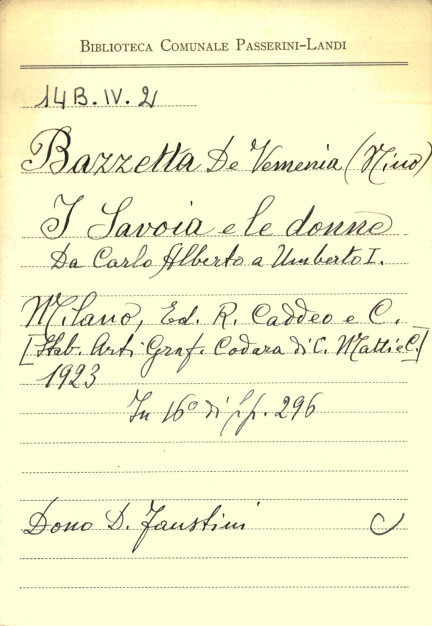 BIBLIOTECA COMUNALE PASSERINI-LANDI
14 B. IV. 21
Bazzetta De Vemenia (Nino)
I Savoia e le donne
Da Carlo Alberto a Umberto I.
Milano, Ed. R. Caddeo e C.
[Stab. Arti Graf. Codara di C. Matti e C.]
1923
In 16° di pp. 296
Dono D. Faustini C